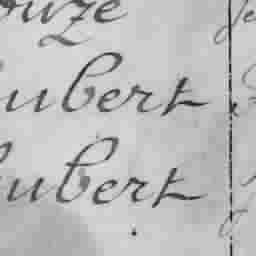 ouze
ubert
ubert